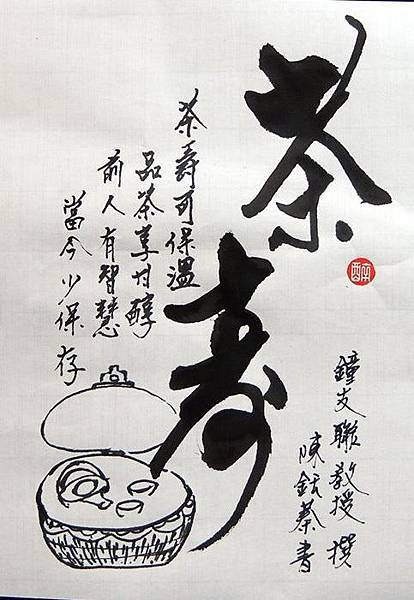 茶壽
茶壽可保溫
品茶享甘醇
前人有智慧
當今少保存
鐘友聯教授 撰
陳 書